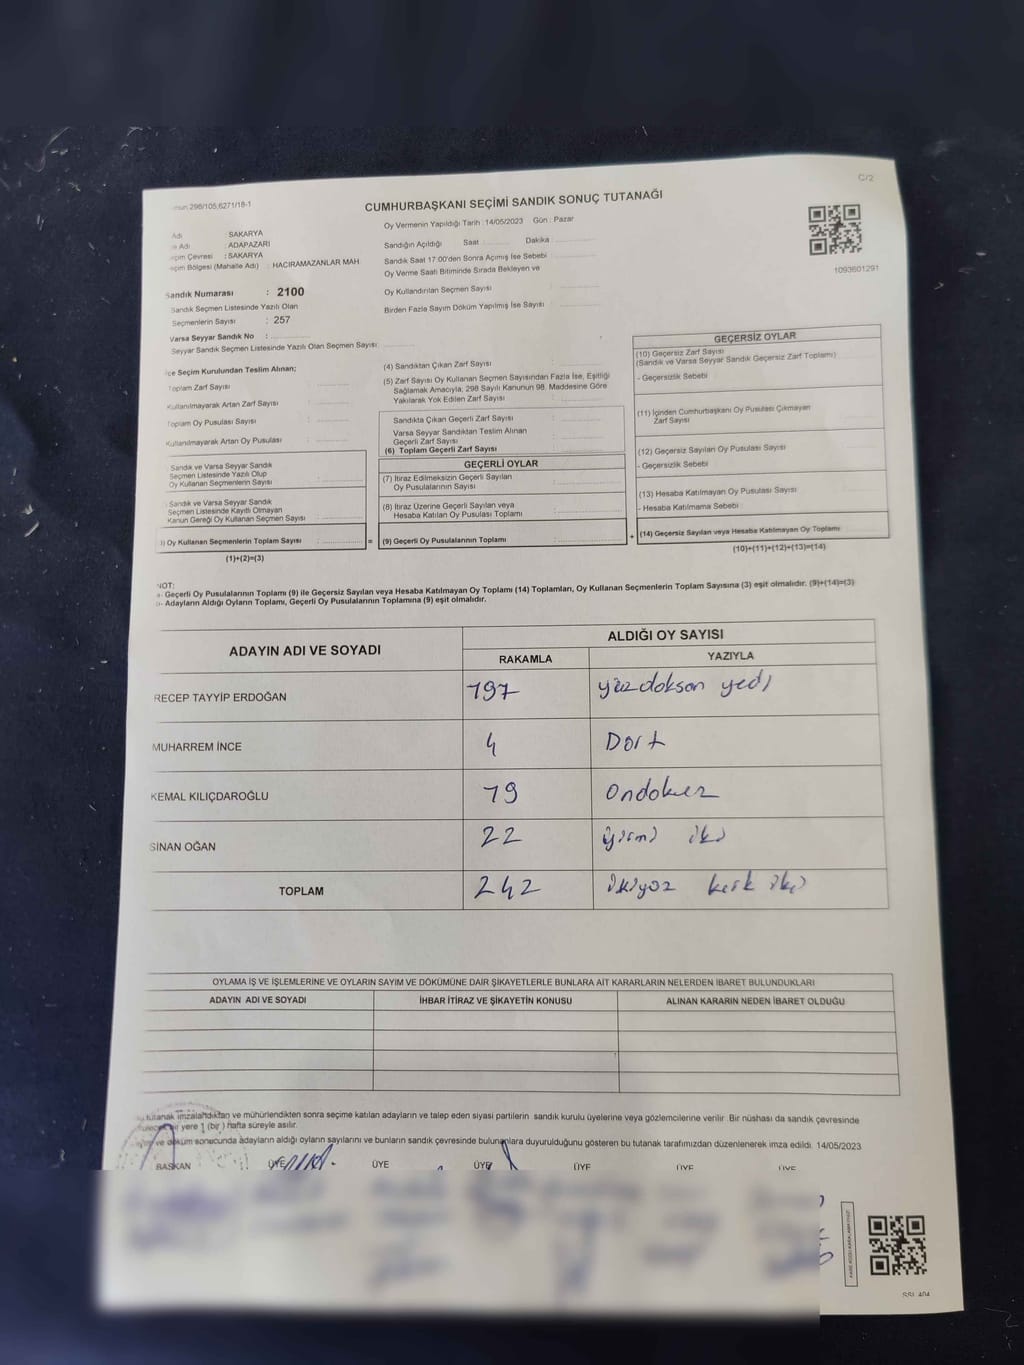 C/2
298/105,6271/18-1
CUMHURBAŞKANI SEÇİMİ SANDIK SONUÇ TUTANAĞI
Adı : SAKARYA
Adı : ADAPAZARI
Çevresi : SAKARYA
Bölgesi (Mahalle Adı) : HACIRAMAZANLAR MAH.
Sandık Numarası : 2100
Sandık Seçmen Listesinde Yazılı Olan
Seçmenlerin Sayısı : 257
Varsa Seyyar Sandık No :
Seyyar Sandık Seçmen Listesinde Yazılı Olan Seçmen Sayısı :
Oy Vermenin Yapıldığı Tarih : 14/05/2023 Gün : Pazar
Sandığın Açıldığı Saat Dakika :
Sandık Saat 17.00'den Sonra Açılmış İse Sebebi
Oy Verme Saati Bitiminde Sırada Bekleyen ve
Oy Kullandırılan Seçmen Sayısı :
Birden Fazla Sayım Döküm Yapılmış İse Sayısı :
1093601291
İlçe Seçim Kurulundan Teslim Alınan;
Toplam Zarf Sayısı :
Kullanılmayarak Artan Zarf Sayısı :
Toplam Oy Pusulası Sayısı :
Kullanılmayarak Artan Oy Pusulası :
Sandık ve Varsa Seyyar Sandık
Seçmen Listesinde Yazılı Olup
Oy Kullanan Seçmenlerin Sayısı :
Sandık ve Varsa Seyyar Sandık
Seçmen Listesinde Kayıtlı Olmayan
Kanun Gereği Oy Kullanan Seçmen Sayısı :
Oy Kullanan Seçmenlerin Toplam Sayısı :
(1)+(2)=(3)
(4) Sandıktan Çıkan Zarf Sayısı :
(5) Zarf Sayısı Oy Kullanan Seçmen Sayısından Fazla İse, Eşitliği
Sağlamak Amacıyla, 298 Sayılı Kanunun 98. Maddesine Göre
Yakılarak Yok Edilen Zarf Sayısı :
Sandıkta Çıkan Geçerli Zarf Sayısı :
Varsa Seyyar Sandıktan Teslim Alınan
Geçerli Zarf Sayısı :
(6) Toplam Geçerli Zarf Sayısı :
GEÇERLİ OYLAR
(7) İtiraz Edilmeksizin Geçerli Sayılan
Oy Pusulalarının Sayısı :
(8) İtiraz Üzerine Geçerli Sayılan veya
Hesaba Katılan Oy Pusulası Toplamı :
=
(9) Geçerli Oy Pusulalarının Toplamı :
+
GEÇERSİZ OYLAR
(10) Geçersiz Zarf Sayısı
(Sandık ve Varsa Seyyar Sandık Geçersiz Zarf Toplamı)
- Geçersizlik Sebebi
(11) İçinden Cumhurbaşkanı Oy Pusulası Çıkmayan
Zarf Sayısı
(12) Geçersiz Sayılan Oy Pusulası Sayısı
- Geçersizlik Sebebi
(13) Hesaba Katılmayan Oy Pusulası Sayısı
- Hesaba Katılmama Sebebi
(14) Geçersiz Sayılan veya Hesaba Katılmayan Oy Toplamı
(10)+(11)+(12)+(13)=(14)
NOT:
- Geçerli Oy Pusulalarının Toplamı (9) ile Geçersiz Sayılan veya Hesaba Katılmayan Oy Toplamı (14) Toplamları, Oy Kullanan Seçmenlerin Toplam Sayısına (3) eşit olmalıdır. (9)+(14)=(3)
- Adayların Aldığı Oyların Toplamı, Geçerli Oy Pusulalarının Toplamına (9) eşit olmalıdır.
ADAYIN ADI VE SOYADI ALDIĞI OY SAYISI
RAKAMLA YAZIYLA
RECEP TAYYİP ERDOĞAN 197 yüzdoksan yedi
MUHARREM İNCE 4 Dört
KEMAL KILIÇDAROĞLU 19 ondokuz
SİNAN OĞAN 22 yirmi iki
TOPLAM 242 ikiyüz kırk iki
OYLAMA İŞ VE İŞLEMLERİNE VE OYLARIN SAYIM VE DÖKÜMÜNE DAİR ŞİKAYETLERLE BUNLARA AİT KARARLARIN NELERDEN İBARET BULUNDUKLARI
ADAYIN ADI VE SOYADI İHBAR İTİRAZ VE ŞİKAYETİN KONUSU ALINAN KARARIN NEDEN İBARET OLDUĞU
tutanak imzalandıktan ve mühürlendikten sonra seçime katılan adayların ve talep eden siyasi partilerin sandık kurulu üyelerine veya gözlemcilerine verilir. Bir nüshası da sandık çevresinde
yere 1 (bir) hafta süreyle asılır.
ve döküm sonucunda adayların aldığı oyların sayılarını ve bunların sandık çevresinde bulunanlara duyurulduğunu gösteren bu tutanak tarafımızdan düzenlenerek imza edildi. 14/05/2023
BAŞKAN ÜYE ÜYE ÜYE ÜYE ÜYE ÜYE